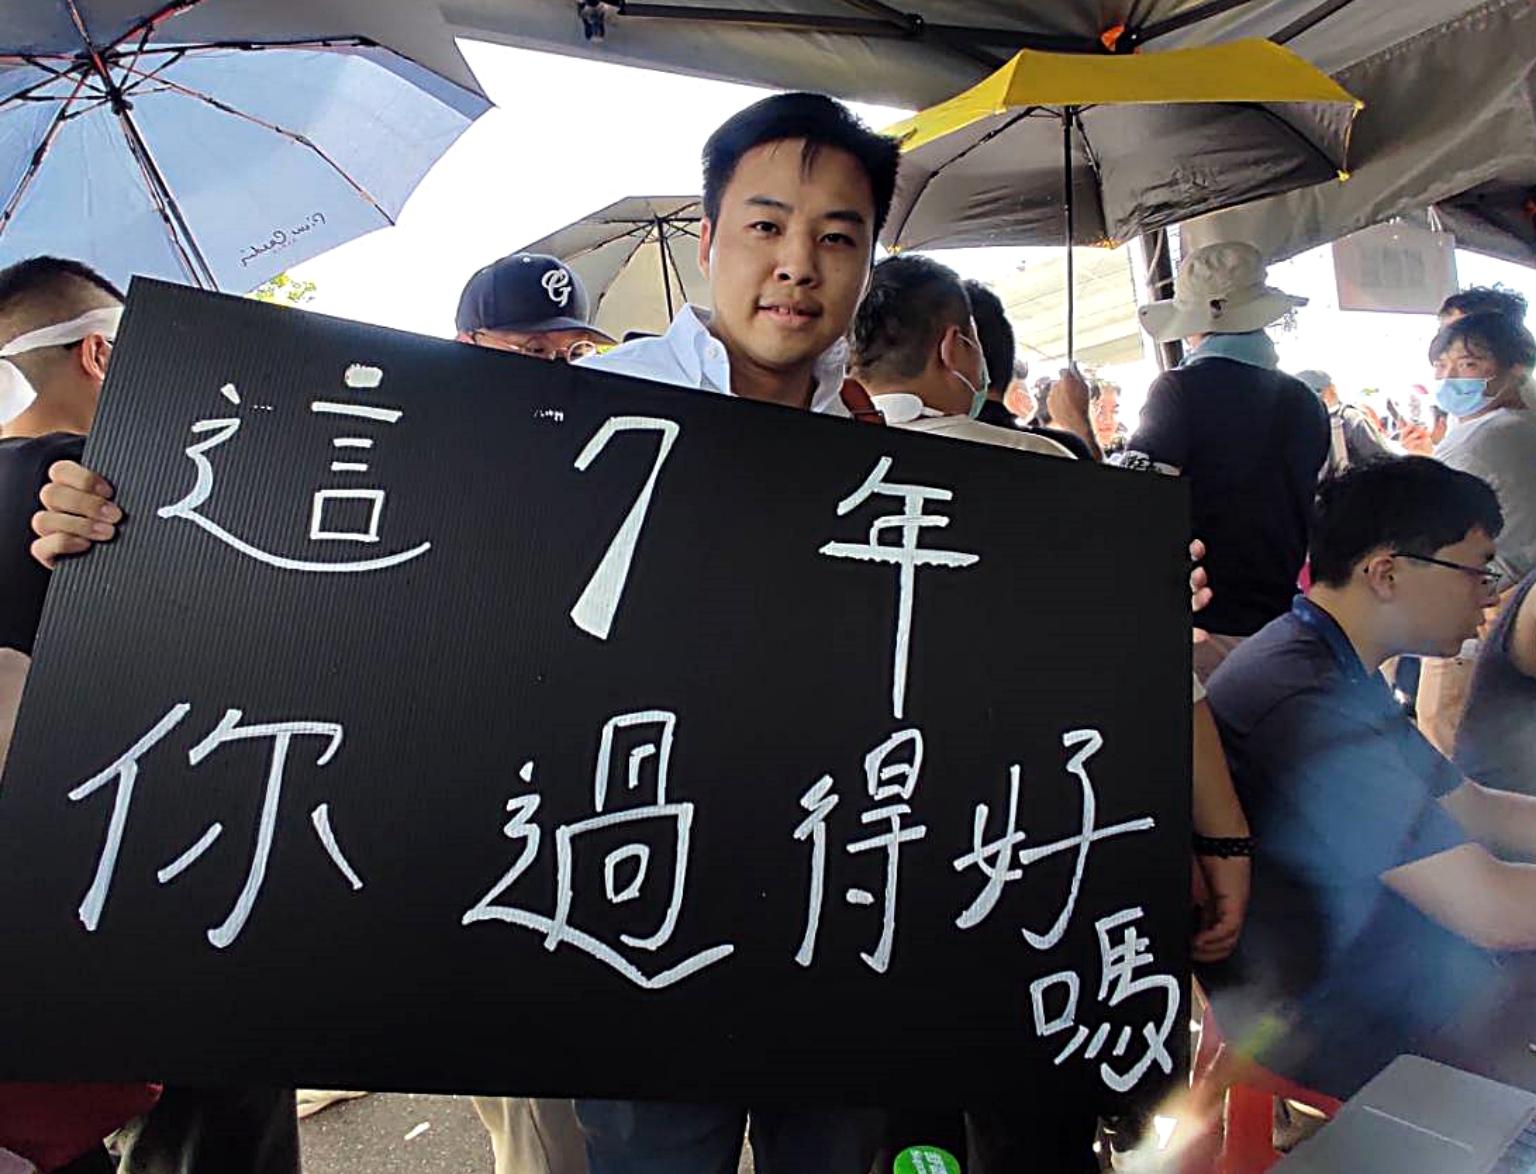 這7年
你過得好
嗎